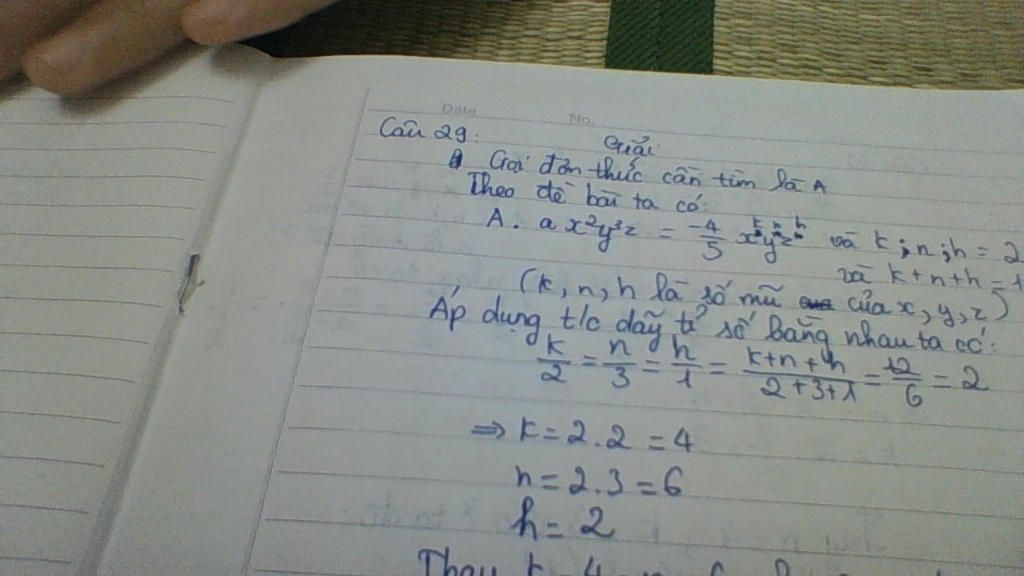 Date No.
Câu 29: Giải
Gọi đơn thức cần tìm là A
Theo đề bài ta có:
A. a x²y³z = -4/5 xᵏyⁿzʰ và k;n;h = 2
và k+n+h = 1
(k, n, h là số mũ của x, y, z)
Áp dụng t/c dãy tỉ số bằng nhau ta có:
k/2 = n/3 = h/1 = k+n+h/2+3+1 = 12/6 = 2
⇒ k = 2.2 = 4
n = 2.3 = 6
h = 2
Thay k = 4